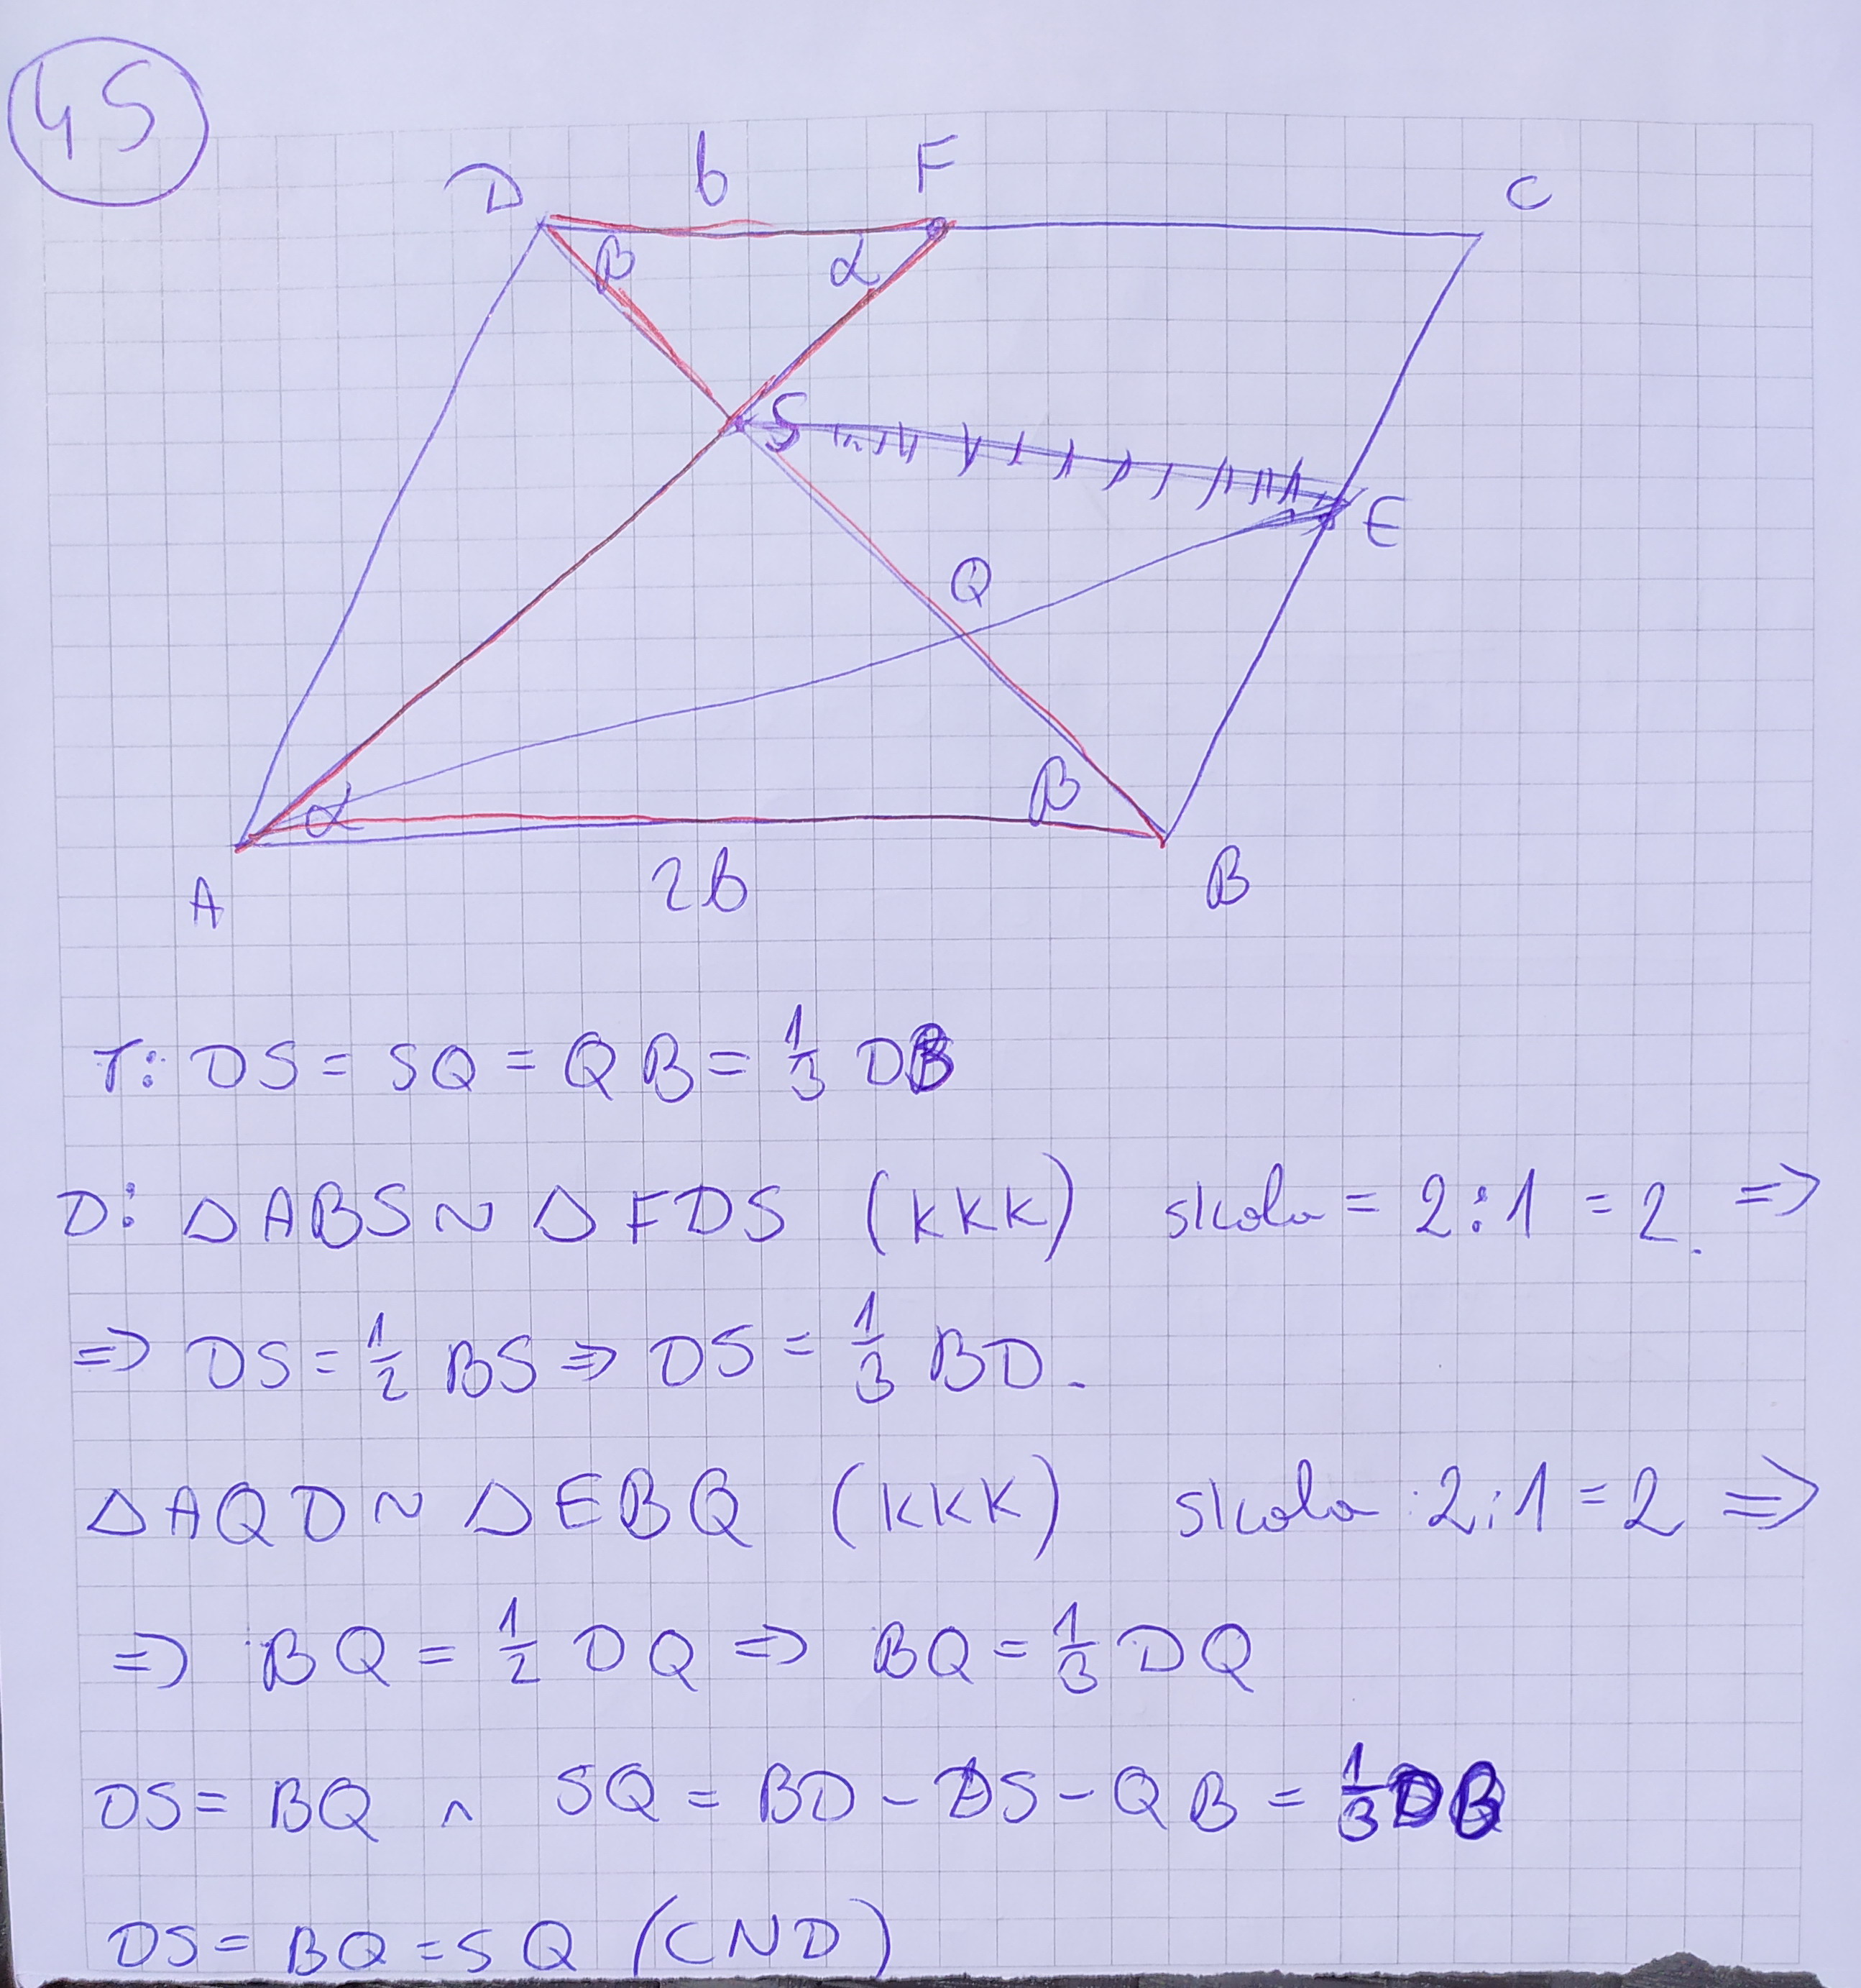 45
D b F C
β α
S
E
Q
α β
A 2b B
T: DS = SQ = QB = 1/3 DB
D: △ABS ~ △FDS (KKK) skala = 2:1 = 2. =>
=> DS = 1/2 BS => DS = 1/3 BD.
△AQD ~ △EBQ (KKK) skala : 2:1 = 2 =>
=> BQ = 1/2 DQ => BQ = 1/3 DQ
DS = BQ ∧ SQ = BD - DS - QB = 1/3 DB
DS = BQ = SQ (CND)